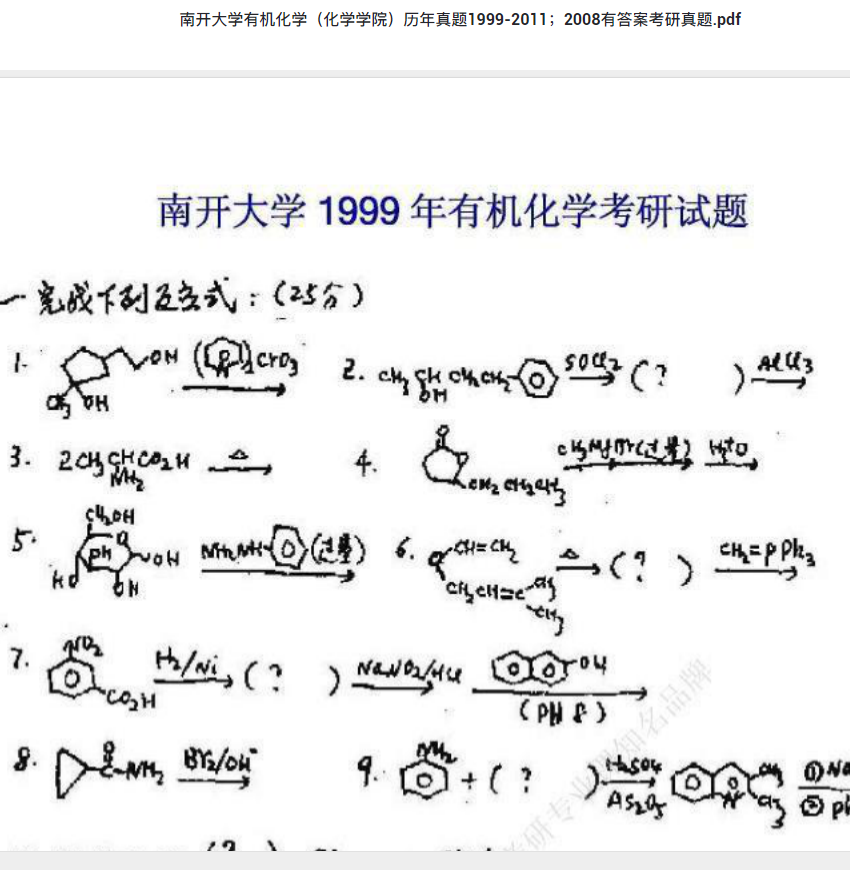 南开大学有机化学（化学学院）历年真题1999-2011；2008有答案考研真题.pdf
南开大学 1999 年有机化学考研试题
一 完成下列反应式：（25分）
1. OH CH3 OH ( N )2 CrO3
2. CH3 CH CH2CH2 OH SOCl2 ( ? ) AlCl3
3. 2CH3CHCO2H NH2 △
4. O CH2CH2CH3 CH3MgBr(过量) H3+O
5. CH2OH O ph OH HO OH NH2NH (过量)
6. O CH=CH2 CH2CH=C CH3 CH3 △ ( ? ) CH2=PPh3
7. NO2 CO2H H2/Ni ( ? ) NaNO2/HCl OH (PH 8)
8. O C-NH2 Br2/OH-
9. NH2 + ( ? ) H2SO4 As2O5 N CH3 CH3 ① ②